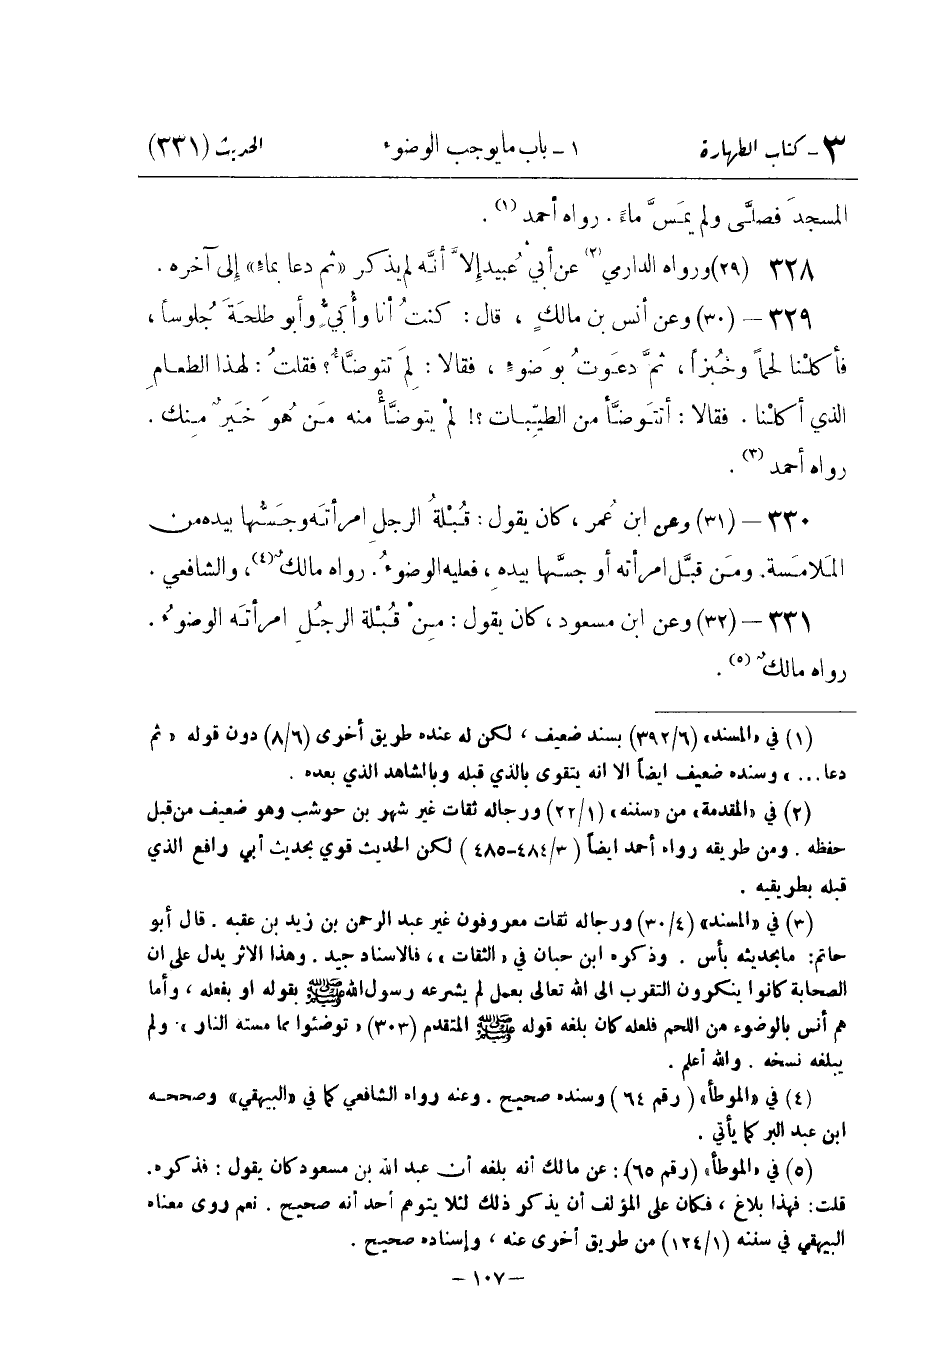 ٣ ـ كتاب الطهارة ١ ـ باب ما يوجب الوضوء الحديث (٣٣١)
المسجدَ فصلَّى ولم يمَسَّ ماءً . رواه أحمد (١) .
٣٢٨ (٢٩) ورواه الدارمي (٢) عن أبي عُبيد إلاَّ أنَّه لم يذكر «ثم دعا بماءٍ» إلى آخره .
٣٢٩ – (٣٠) وعن أنس بن مالكٍ ، قال : كنتُ أنا وأُبيٌّ وأبو طلحَةَ جُلوساً ،
فأكلْنا لحماً وخُبزاً ، ثمَّ دعَوتُ بوَضوءٍ ، فقالا : لِمَ تتوضَّأُ ؟ فقلتُ : لهذا الطعـامِ
الذي أكلْنا . فقالا : أنتَوضَّأ من الطيّبـات ؟! لمْ يتوضَّأْ منه مَـن هُوَ خَيرٌ مـِنك .
رواه أحمد (٣) .
٣٣٠ – (٣١) وعن ابن عُمر ، كان يقول : قُبلةُ الرجلِ امرأتَه وجَسُّها بيده مِن
المُلامَسة. ومَن قبَّل امرأته أو جسَّها بيدهِ ، فعليه الوضوءُ. رواه مالكٌ (٤) ، والشافعي .
٣٣١ – (٣٢) وعن ابن مسعود ، كان يقول : مِـنْ قُبْلةِ الرجُلِ امرأتَه الوضوءُ .
رواه مالكٌ (٥) .
(١) في «المسند» (٣٩٢/٦) بسند ضعيف ، لكن له عنده طريق أخرى (٨/٦) دون قوله « ثم
دعا... » وسنده ضعيف ايضاً الا انه يتقوى بالذي قبله وبالشاهد الذي بعده .
(٢) في «المقدمة» من «سننه» (٢٢/١) ورجاله ثقات غير شهر بن حوشب وهو ضعيف من قبل
حفظه . ومن طريقه رواه أحمد ايضاً ( ٤٨٤/٣–٤٨٥ ) لكن الحديث قوي بحديث أبي رافع الذي
قبله بطريقيه .
(٣) في «المسند» (٣٠/٤) ورجاله ثقات معروفون غير عبد الرحمن بن زيد بن عقبه . قال أبو
حاتم: مابحديثه بأس . وذكره ابن حبان في « الثقات » ، فالاسناد جيد . وهذا الاثر يدل على ان
الصحابة كانوا ينكرون التقرب الى الله تعالى بعمل لم يشرعه رسول الله ﷺ بقوله او بفعله ، وأما
هم أنس بالوضوء من اللحم فلعله كان بلغه قوله ﷺ المتقدم (٣٠٣) « توضئوا مما مسته النار » ولم
يبلغه نسخه . والله أعلم .
(٤) في «الموطأ» ( رقم ٦٤ ) وسنده صحيح . وعنه رواه الشافعي كما في «البيهقي» وصححـه
ابن عبد البر كما يأتي .
(٥) في «الموطأ» (رقم ٦٥): عن مالك أنه بلغه أن عبد الله بن مسعود كان يقول : فذكره.
قلت: فهذا بلاغ ، فكان على المؤلف أن يذكر ذلك لئلا يتوهم أحد أنه صحيح . نعم روى معناه
البيهقي في سننه (١٢٤/١) من طريق أخرى عنه ، وإسناده صحيح .
– ١٠٧ –